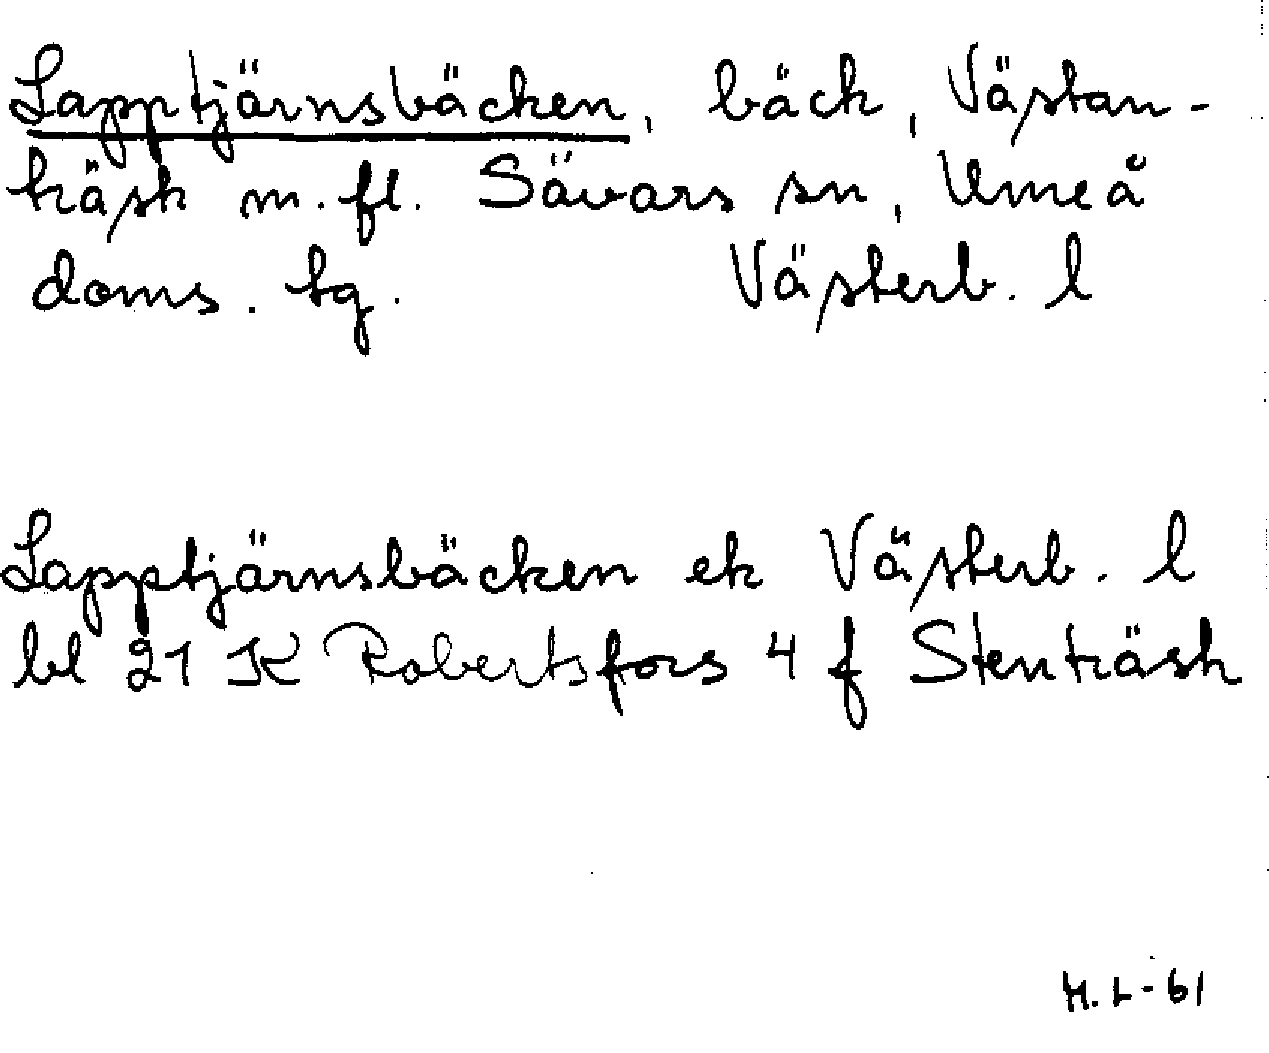 Lapptjärnsbäcken, bäck, Västan-
träsk m. fl. Sävars sn, Umeå
doms. tg. Västerb. l
Lapptjärnsbäcken ek Västerb. l
bl 21 K Robertsfors 4 f Stenträsk
H. L - 61